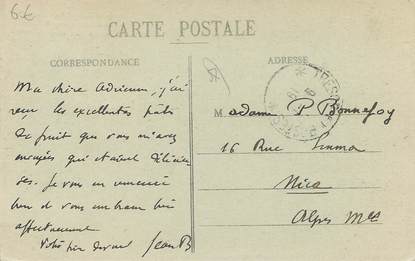 6€
CARTE POSTALE
CORRESPONDANCE
ADRESSE
Ma chère Adrienne, j'ai
reçu les excellentes pâtes
de fruit que vous m'avez
envoyées qui étaient délicieu-
ses. Je vous en remercie
bien et vous embrasse bien
affectueusement
Votre bien dévoué Jean B
Madame P. Bonnefoy
16 Rue
Nice
Alpes Mmes
TRESOR ET POSTES